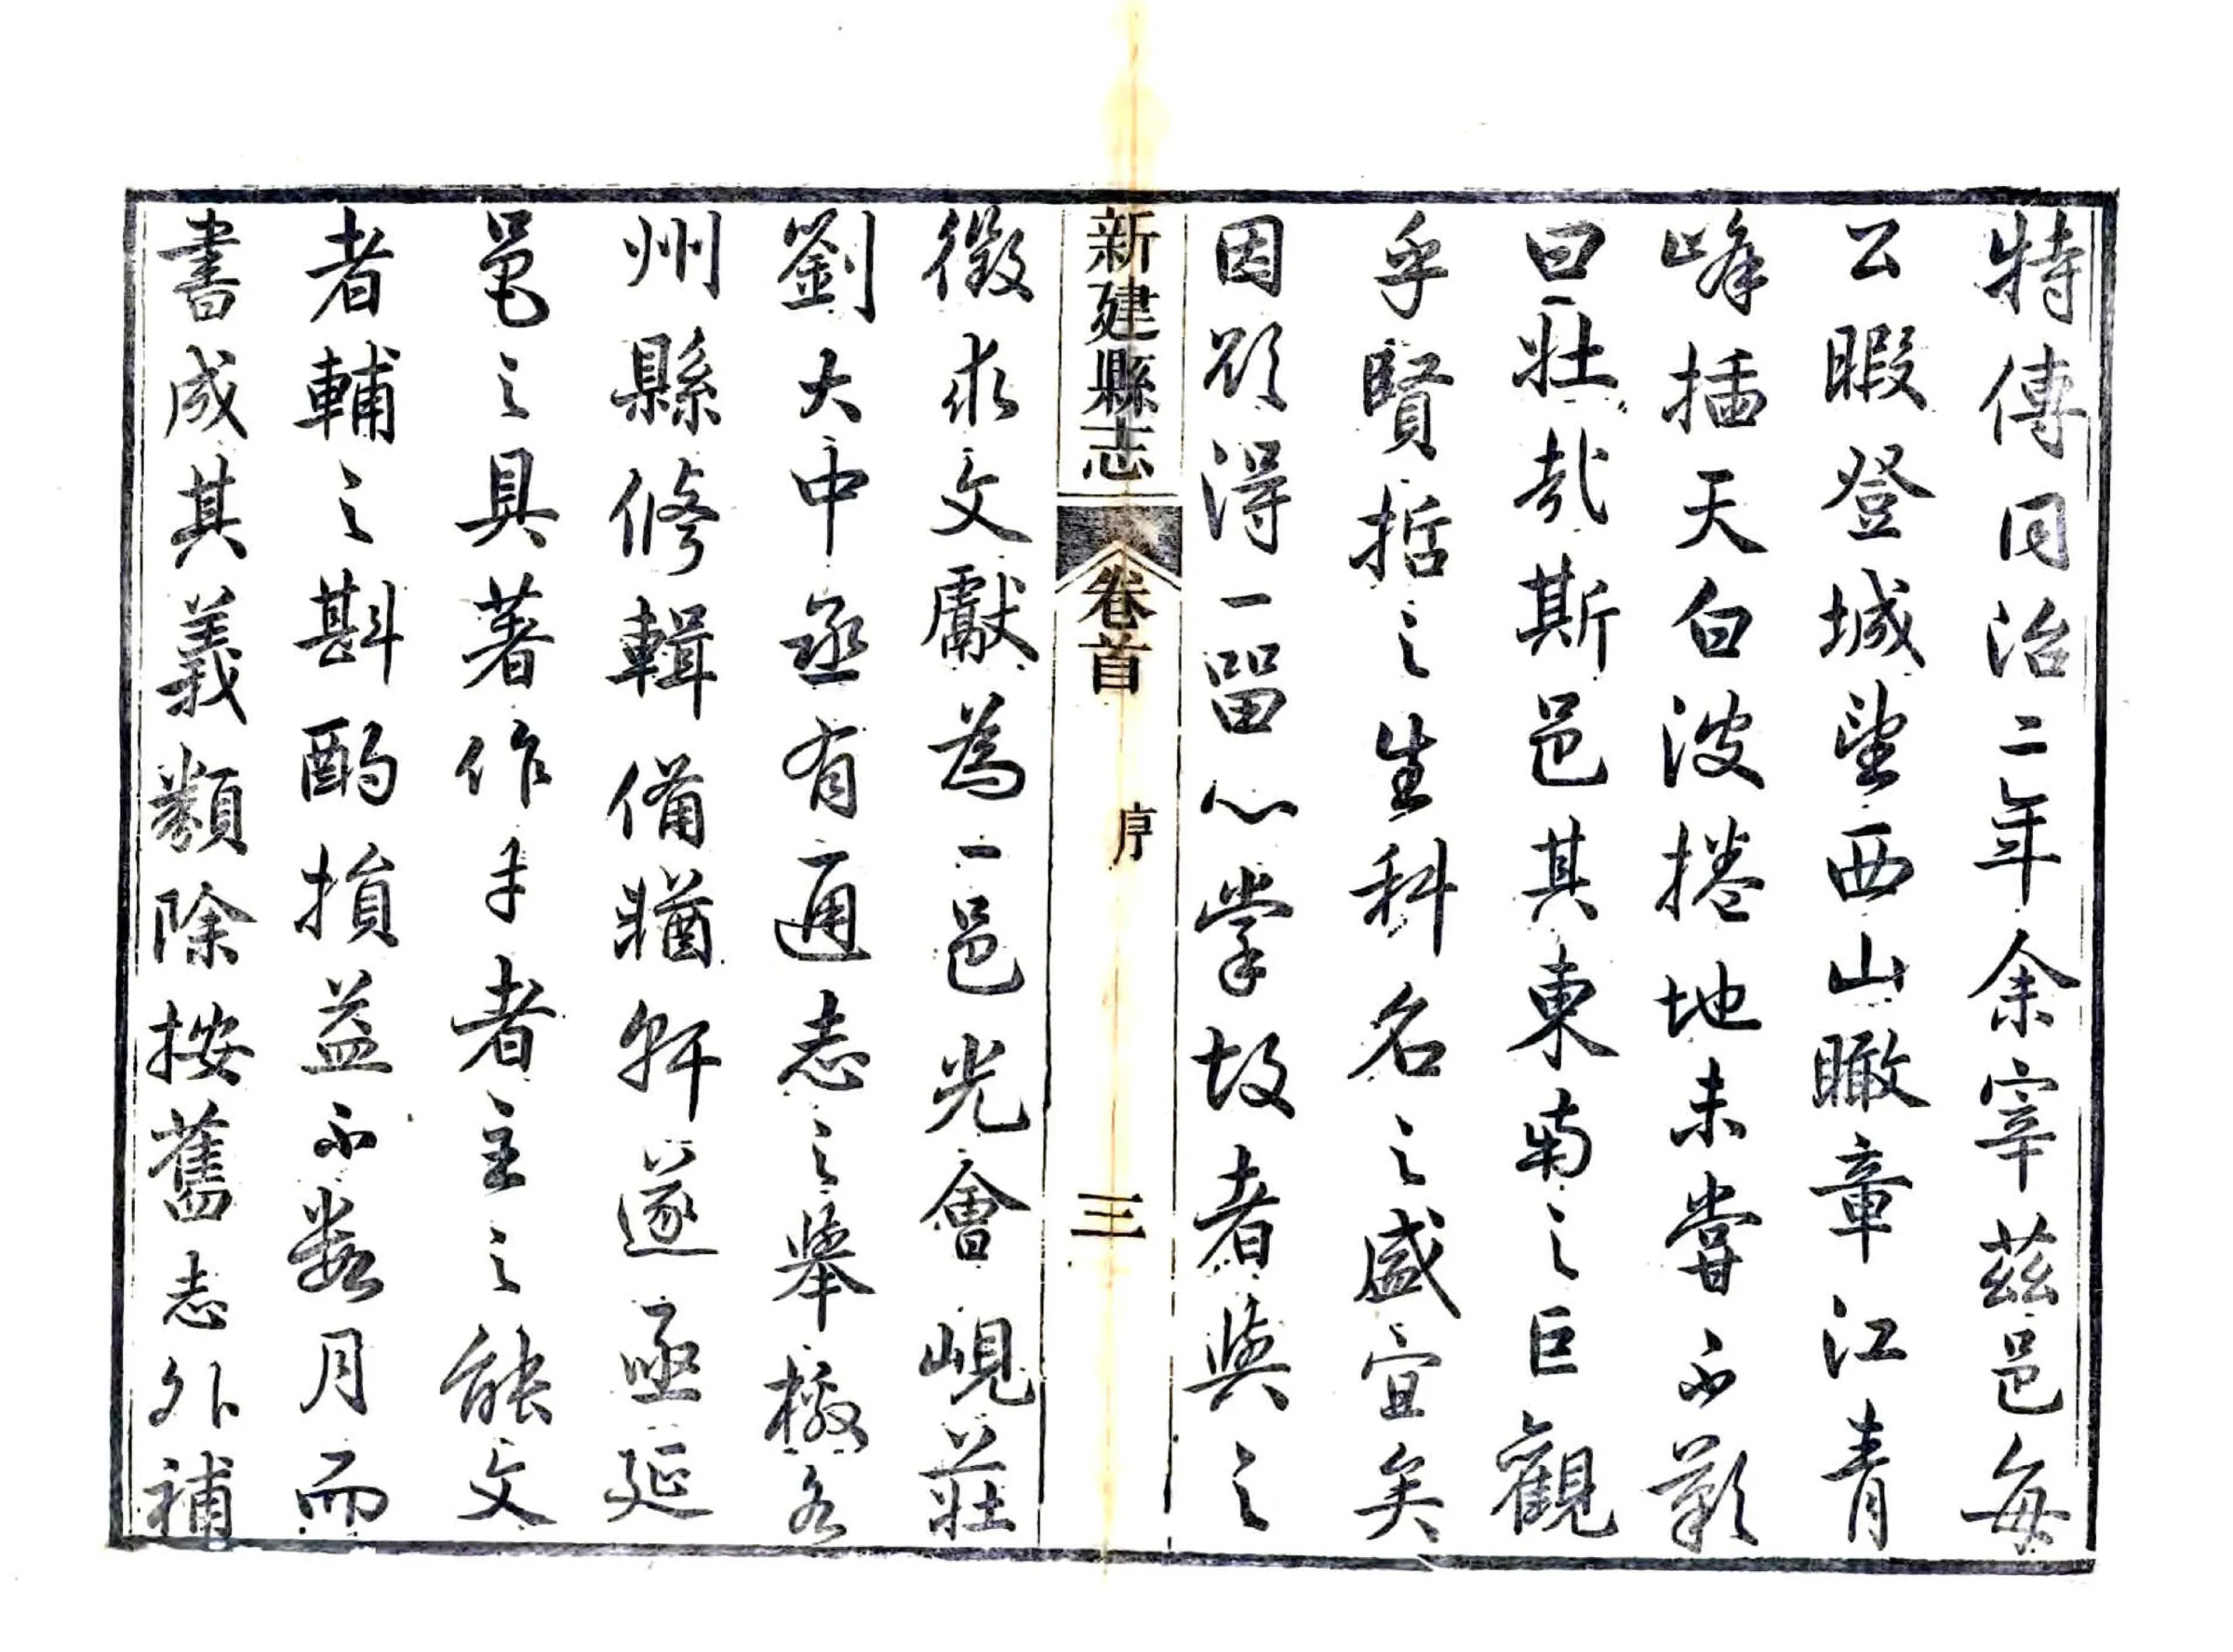 特傳同治二年余宰茲邑每
公暇登城望西山瞰章江青
峰插天白波捲地未嘗不歎
曰壯哉斯邑其東南之巨觀
乎賢哲之生科名之盛宜矣
因欲得一留心掌故者與之
新建縣志 卷首 序 三
徵求文獻為一邑光會峴莊
劉大中丞有通志之舉檄各
州縣修輯備猶軒遂亟延
邑之具著作手者主之能文
者輔之斟酌損益不數月而
書成其義類除按舊志外補